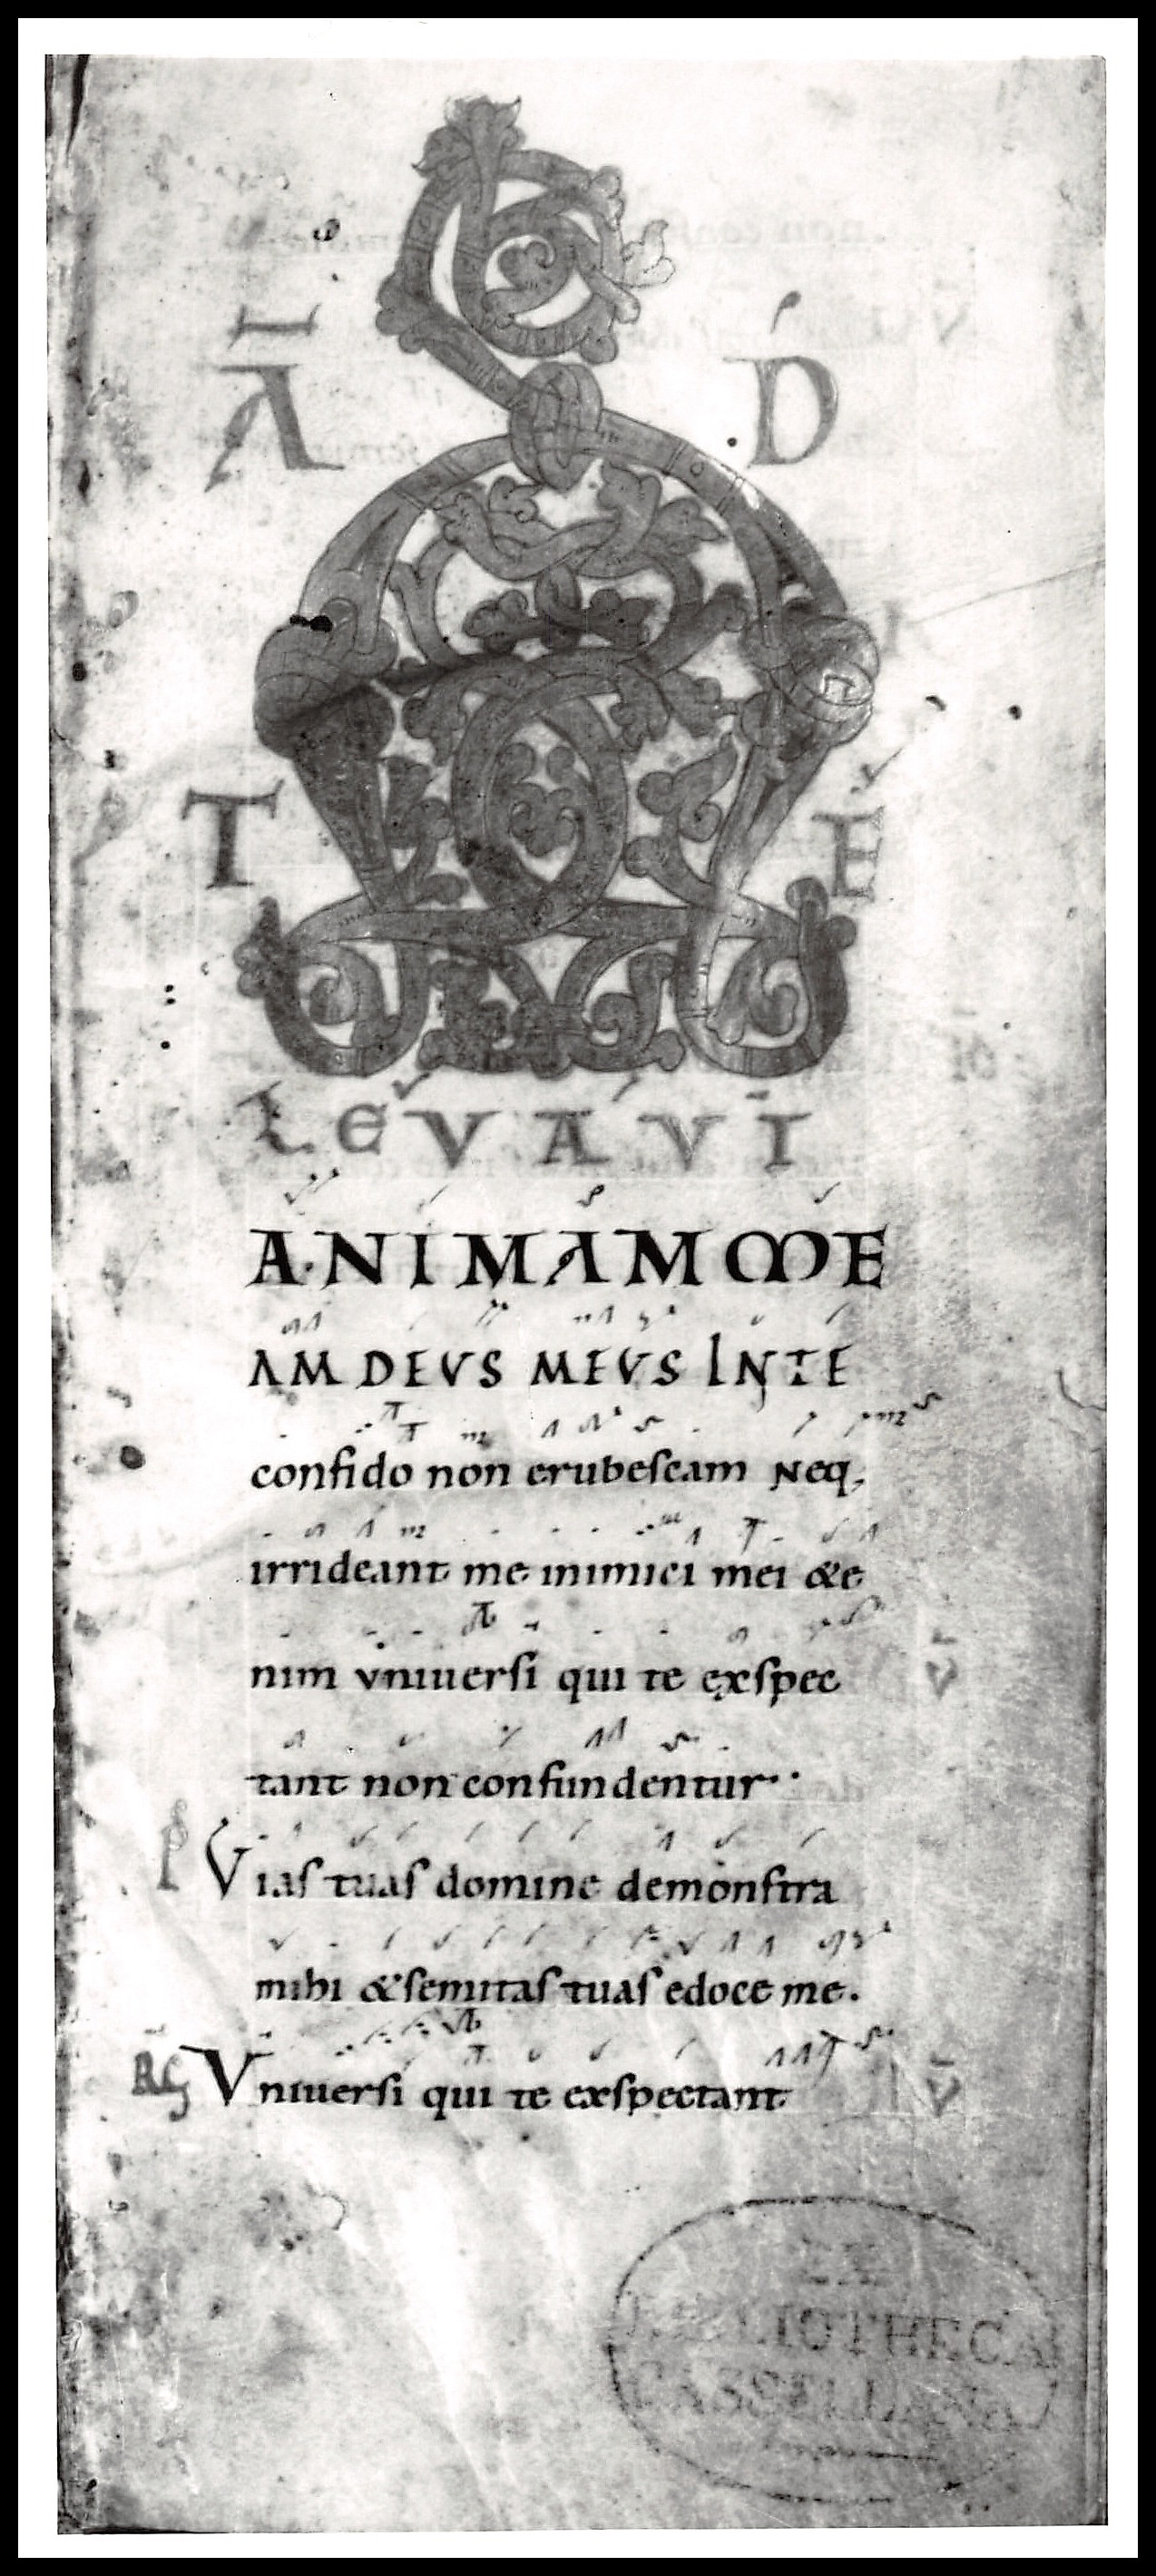 A D
T E
LEVAVI
ANIMAM ME
AM DEUS MEUS INTE
confido non erubescam Neq;
irrideant me inimici mei &e
nim universi qui te exspec
tant non confundentur
PS Vias tuas domine demonstra
mihi & semitas tuas edoce me.
RG Vniuersi qui te exspectant V
EX
BIBLIOTHECA
CASSELLANA